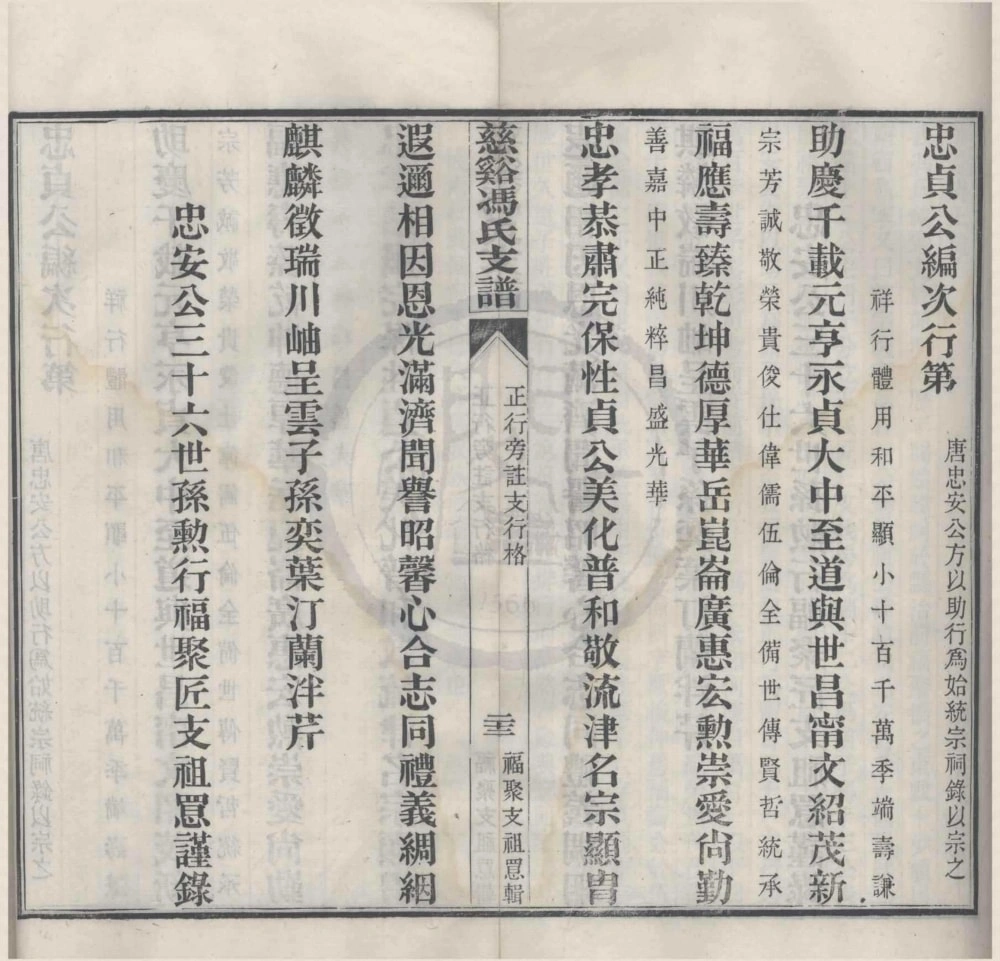 忠貞公編次行第
唐忠安公方以助行爲始統宗祠錄以宗之
祥行體用和平顯小十百千萬季端壽謙
助慶千載元亨永貞大中至道與世昌甯文紹茂新
宗芳誠敬榮貴俊仕偉儒伍倫全備世傳賢哲統承
福應壽臻乾坤德厚華岳崑崙廣惠宏勲崇愛尙勤
善嘉中正純粹昌盛光華
忠孝恭肅完保性貞公美化普和敬流津名宗顯胄
慈谿馮氏支譜
正行旁註支行格
二十三
福聚支祖惒輯
遐邇相因恩光滿濟聞譽昭馨心合志同禮義綢絪
麒麟徵瑞川岫呈雲子孫奕葉汀蘭泮芹
忠安公三十六世孫勲行福聚匠支祖惒謹錄